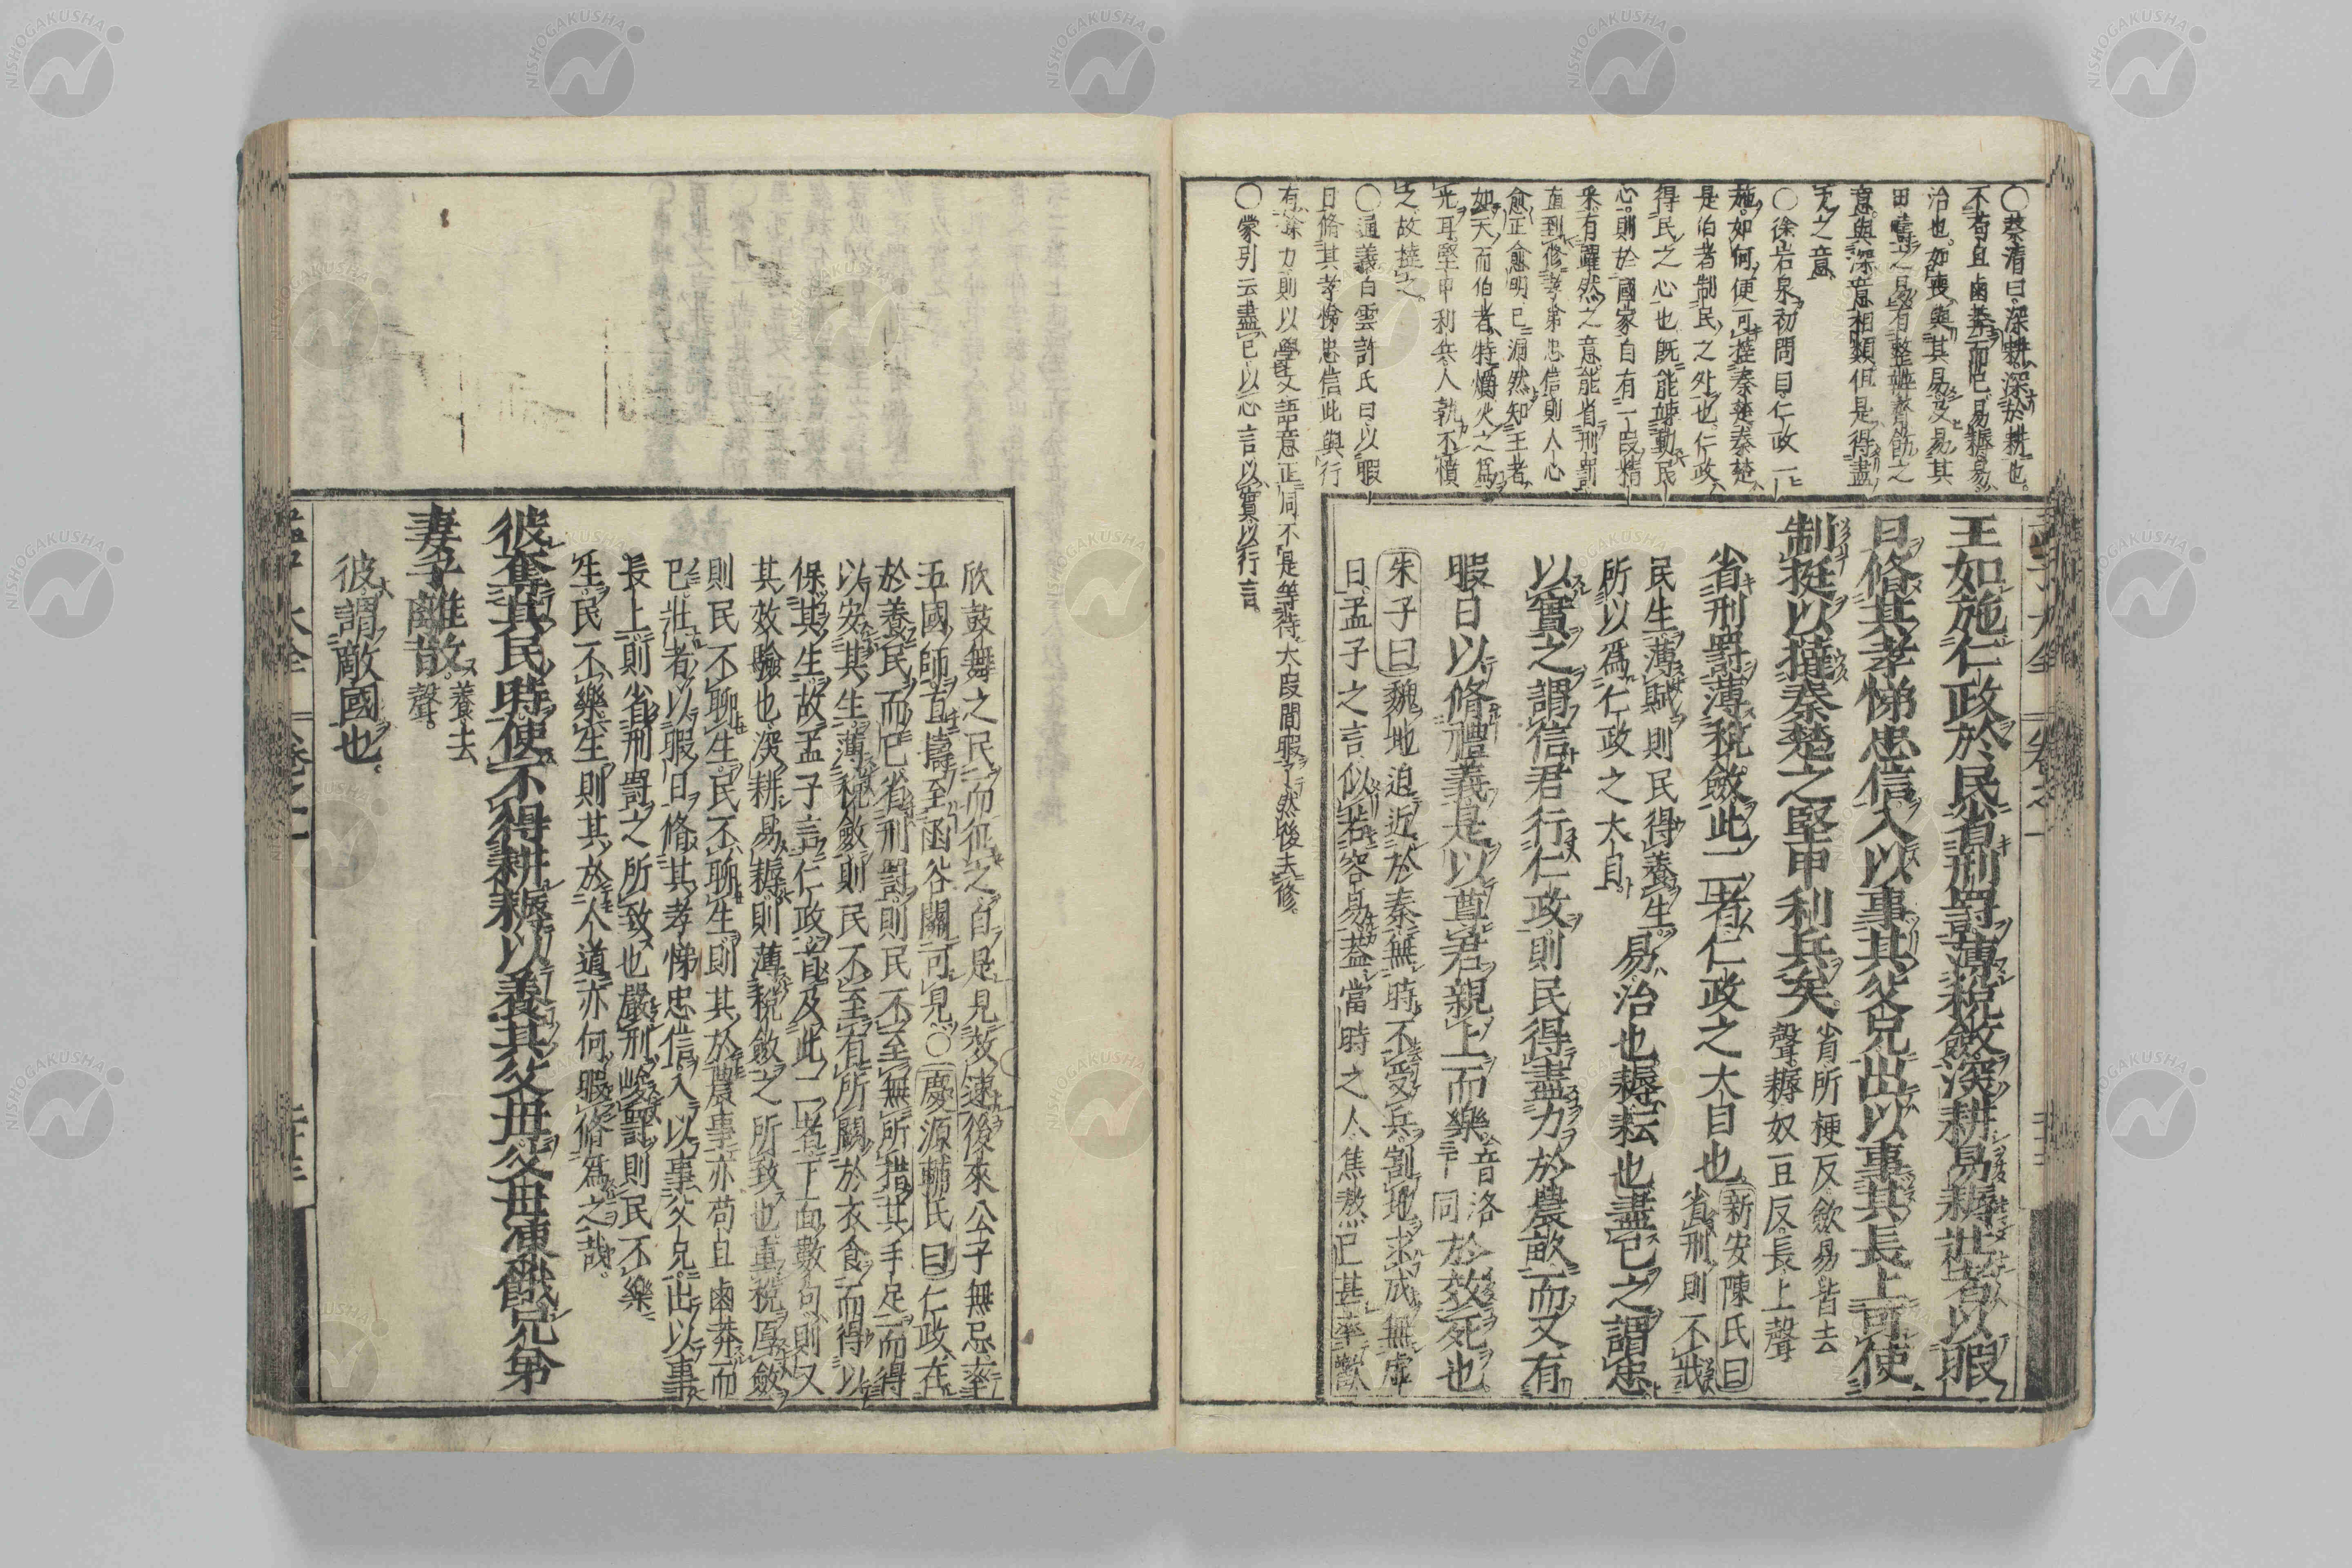 〇蔡清曰深耕深於耕也
不苟且鹵莽而已易耨易
治也如喪與其易及易其
田疇之易有整辦齊飭之
意與深意相類但是得盡
力之意
〇徐岩泉初問目仁政一
施如何便可撻秦楚秦楚
是伯者制民之外也仁政
得民之心也既能歸動民
心則於國家自有一段精
采有躍然之意能省刑罰
直到修孝弟忠信則人心
愈正愈明已洞然知王者
如天而伯者特爝火之爲
光耳堅甲利兵人執不憤
之故撻之
〇通義白雲許氏曰以暇
日脩其孝悌忠信此與行
有餘力則以學文語意正同不是等待大段閒暇了然後去修
〇蒙引云盡已以心言以實以行言
王如施仁政於民省刑罰薄稅斂深耕易耨壯者以暇
日脩其孝悌忠信入以事其父兄出以事其長上可使
制挺以撻秦楚之堅甲利兵矣省所梗反斂易皆去
聲耨奴豆反長上聲
省刑罰薄稅斂此二者仁政之大目也新安陳氏曰
省刑則不戕
民生薄賦則民得養生
所以爲仁政之大目易治也耨耘也盡已之謂忠
以實之謂信君行仁政則民得盡力於農畝而又有
暇日以脩禮義是以尊君親上而樂音洛
下同於效死也
朱子曰魏地迫近於秦無時不受兵割地求成無虛
日孟子之言似若容易蓋當時之人焦熬已甚率歡
欣鼓舞之民而征之自是見效速後來公子無忌率
五國師直擣至函谷關可見〇慶源輔氏曰仁政在
於養民而已省刑罰則民不至無所措其手足而得
以安其生薄稅斂則民不至有所闕於衣食而得以
保其生故孟子言仁政皆及此二者下面數句則又
其效驗也深耕易耨則薄稅斂之所致也重稅厚斂
則民不聊生民不聊生則其於農事亦苟且鹵莽而
已壯者以暇日脩其孝悌忠信入以事父兄出以事
長上則省刑罰之所致也嚴刑峻罰則民不樂
生民不樂生則其於人道亦何暇脩爲之哉
彼奪其民時使不得耕耨以養其父母父母凍餓兄弟
妻子離散養去
聲
彼謂敵國也